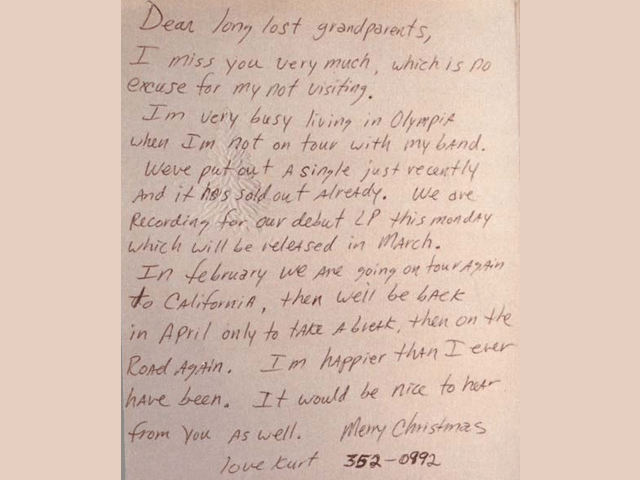 Dear long lost grandparents,
I miss you very much, which is no
excuse for my not visiting.
I'm very busy living in Olympia
when I'm not on tour with my band.
We've put out a single just recently
And it has sold out Already. We are
Recording for our debut LP this monday
which will be released in March.
In february we are going on tour Again
to California, then we'll be back
in April only to take a break, then on the
Road Again. I'm happier than I ever
have been. It would be nice to hear
from you as well. Merry Christmas
love Kurt 352-0992